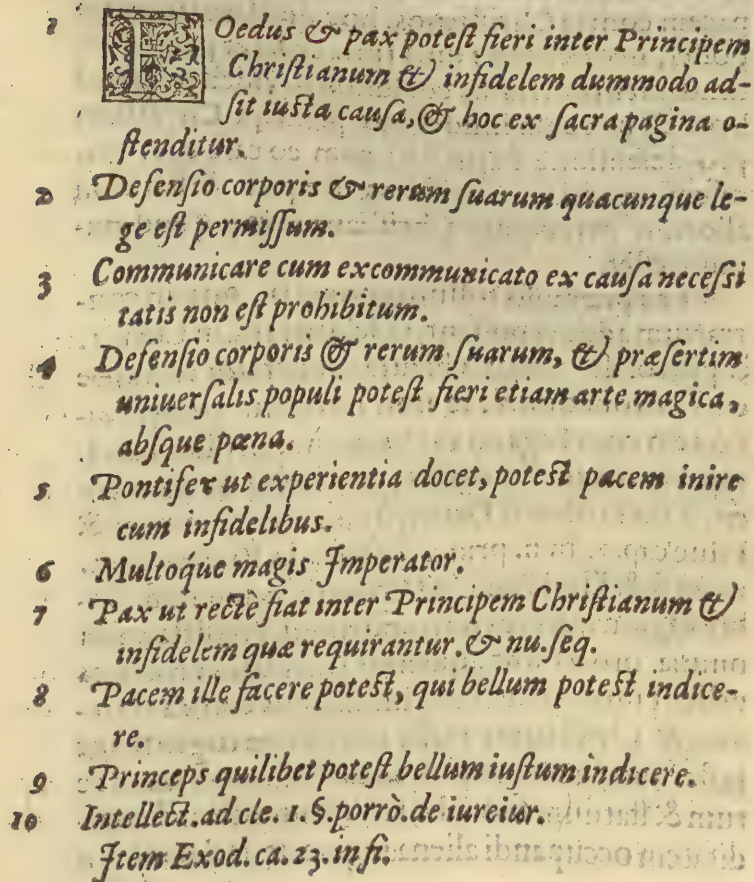 1 FOedus & pax potest fieri inter Principem
Christianum & infidelem dummodo ad-
sit iusta causa, & hoc ex sacra pagina o-
stenditur.
2 Defensio corporis & rerum suarum quacunque le-
ge est permissum.
3 Communicare cum excommunicato ex causa necessi
tatis non est prohibitum.
4 Defensio corporis & rerum suarum, & præsertim
uniuersalis populi potest fieri etiam arte magica,
absque pœna.
5 Pontifex ut experientia docet, potest pacem inire
cum infidelibus.
6 Multoq́ue magis Imperator.
7 Pax ut rectè fiat inter Principem Christianum &
infidelem quæ requirantur. & nu. seq.
8 Pacem ille facere potest, qui bellum potest indice-
re.
9 Princeps quilibet potest bellum iustum indicere.
10 Intellect. ad cle. 1. §. porrò. de iureiur.
Item Exod. ca. 23. in fi.